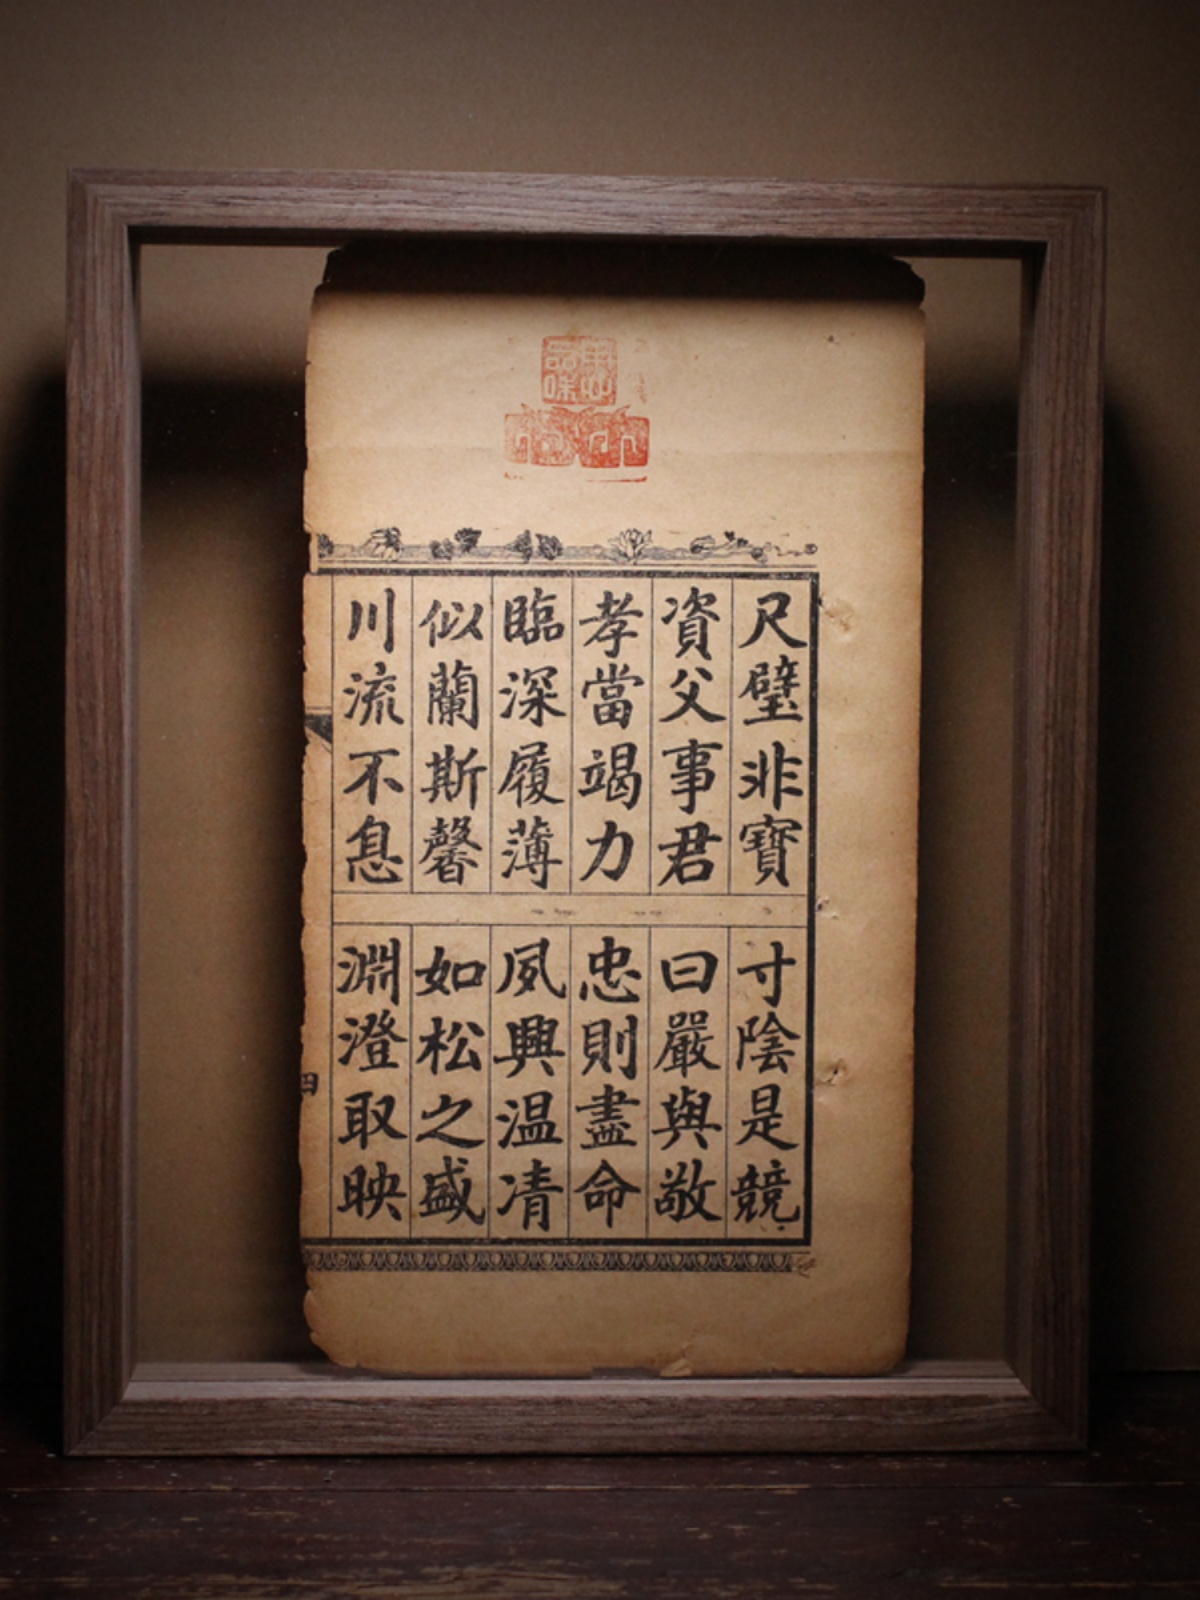 尺璧非寶
寸陰是競
資父事君
曰嚴與敬
孝當竭力
忠則盡命
臨深履薄
夙興温凊
似蘭斯馨
如松之盛
川流不息
淵澄取映
四